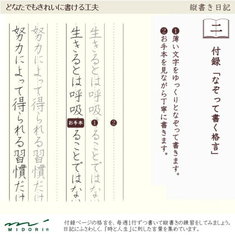 どなたでもきれいに書ける工夫
縦書き日記
二
付録「なぞって書く格言」
❶薄い文字をゆっくりとなぞって書きます。
❷お手本を見ながら丁寧に書きます。
❷
❶
生きるとは呼吸
お手本
ることではな
生きるとは呼吸
ることではな
努力によって得られる習慣だけ
努力によって得られる習慣だけ
MIDORI
付録ページの格言を、毎週1行ずつ書いて縦書きの練習をしてみましょう。
日記にふさわしく、「時と人生」に則した言葉を集めています。